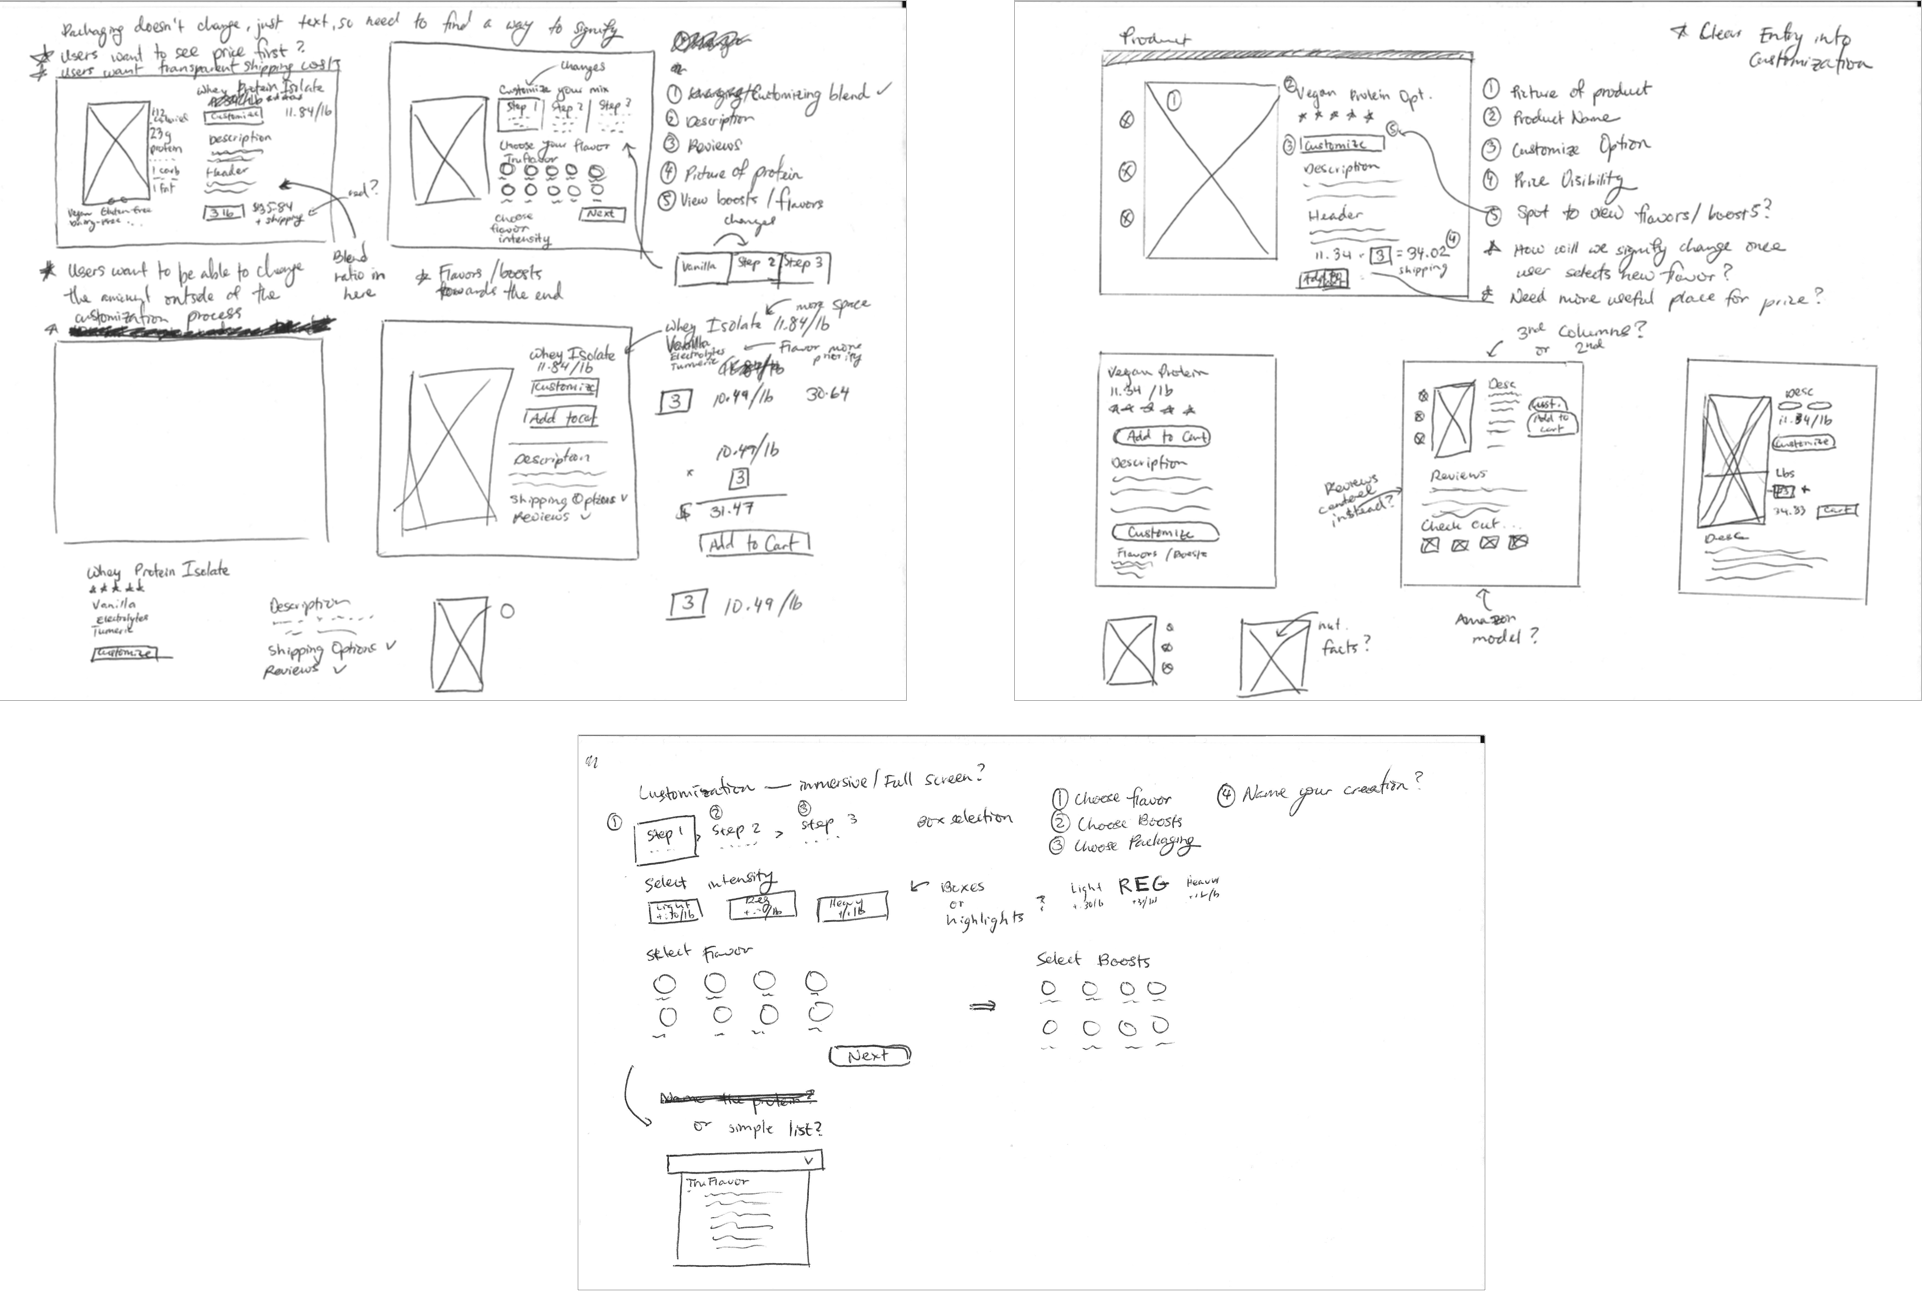 Packaging doesn't change, just text, so need to find a way to signify
* Users want to see price first?
* Users want transparent shipping costs
Whey Protein Isolate
Customize 11.84/lb
112
23g
protein
1 carb
1 fat
Description
Header
3 lb $35.84
+ shipping
Vegan Gluten-free
Dairy-free...
Blend
ratio in
here
changes
Customize your mix
Step 1 Step 2 Step 3
Choose your flavor
Tru Flavor
choose
flavor
intensity
Next
① Customizing blend ✓
② Description
③ Reviews
④ Picture of protein
⑤ View boosts / flavors
changed
Vanilla Step 2 Step 3
* Users want to be able to change
the amount outside of the
customization process
* Flavors / boosts
towards the end
Whey Isolate
11.84/lb
Customize
Add to cart
Description
Shipping Options ✓
Reviews ✓
more space
Whey Isolate 11.84/lb
Vanilla
Electrolytes
Tumeric
Flavor more
priority
3 10.49/lb 30.64
10.49/lb
* 3
$ 31.47
Add to Cart
3 10.49/lb
Whey Protein Isolate
★★★★★
Vanilla
Electrolytes
Tumeric
Customize
Description
Shipping Options ✓
Reviews ✓
* Clear Entry into
Customization
Product
①
② Vegan Protein Opt.
★ ★ ★ ★ ★
③ Customize
⑤
Description
Header
④
11.34 · 3 = 34.02
shipping
① Picture of product
② Product Name
③ Customize Option
④ Price Visibility
⑤ Spot to view flavors/boosts?
* How will we signify change once
user selects new flavor?
* Need more useful place for price?
Vegan Protein
11.34 /lb
★ ★ ★ ★ ★
Add to Cart
Description
Customize
Flavors / Boosts
3rd columns?
or 2nd
Desc
Cust.
Add to
cart
Reviews
Check out...
Reviews
centered
instead?
Amazon
model?
Desc
11.34/lb
Customize
Lbs
34.83 Cart
Desc
nut.
facts?
Customization — immersive / Full Screen?
① Step 1 > ② Step 2 > ③ Step 3
Box selection
① Choose flavor
② Choose Boosts
③ Choose Packaging
④ Name your creation?
Select intensity
Light Reg Heavy
Boxes
or
highlights
?
Light REG Heavy
Select Flavor
Select Boosts
Next
Name the protein?
or simple list?
Tru Flavor